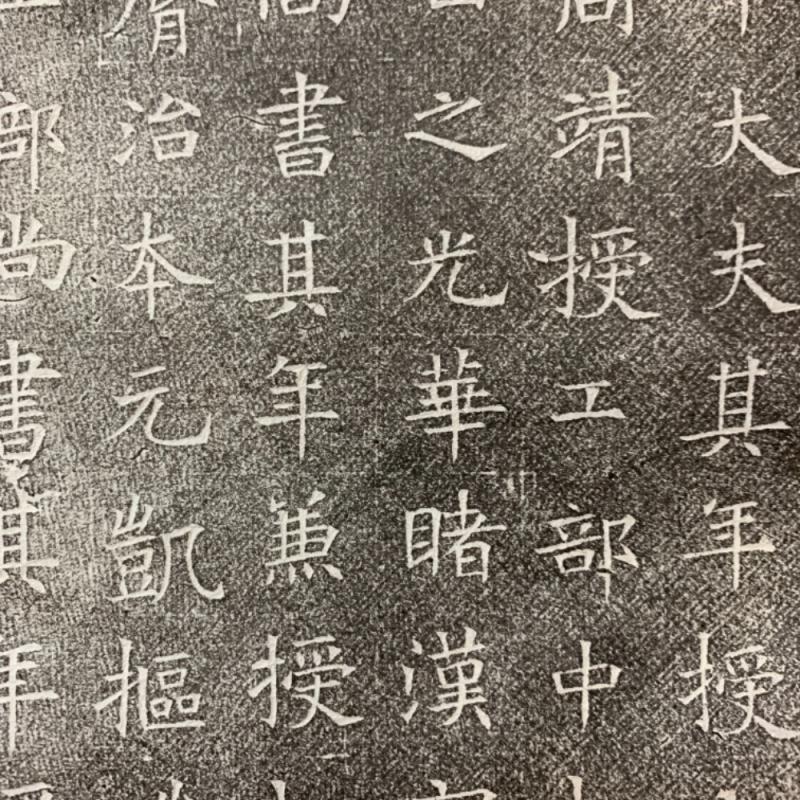 大夫其年授
靖授工部中
之光華睹漢
書其年兼授
治本元凱摳
部尚書其年